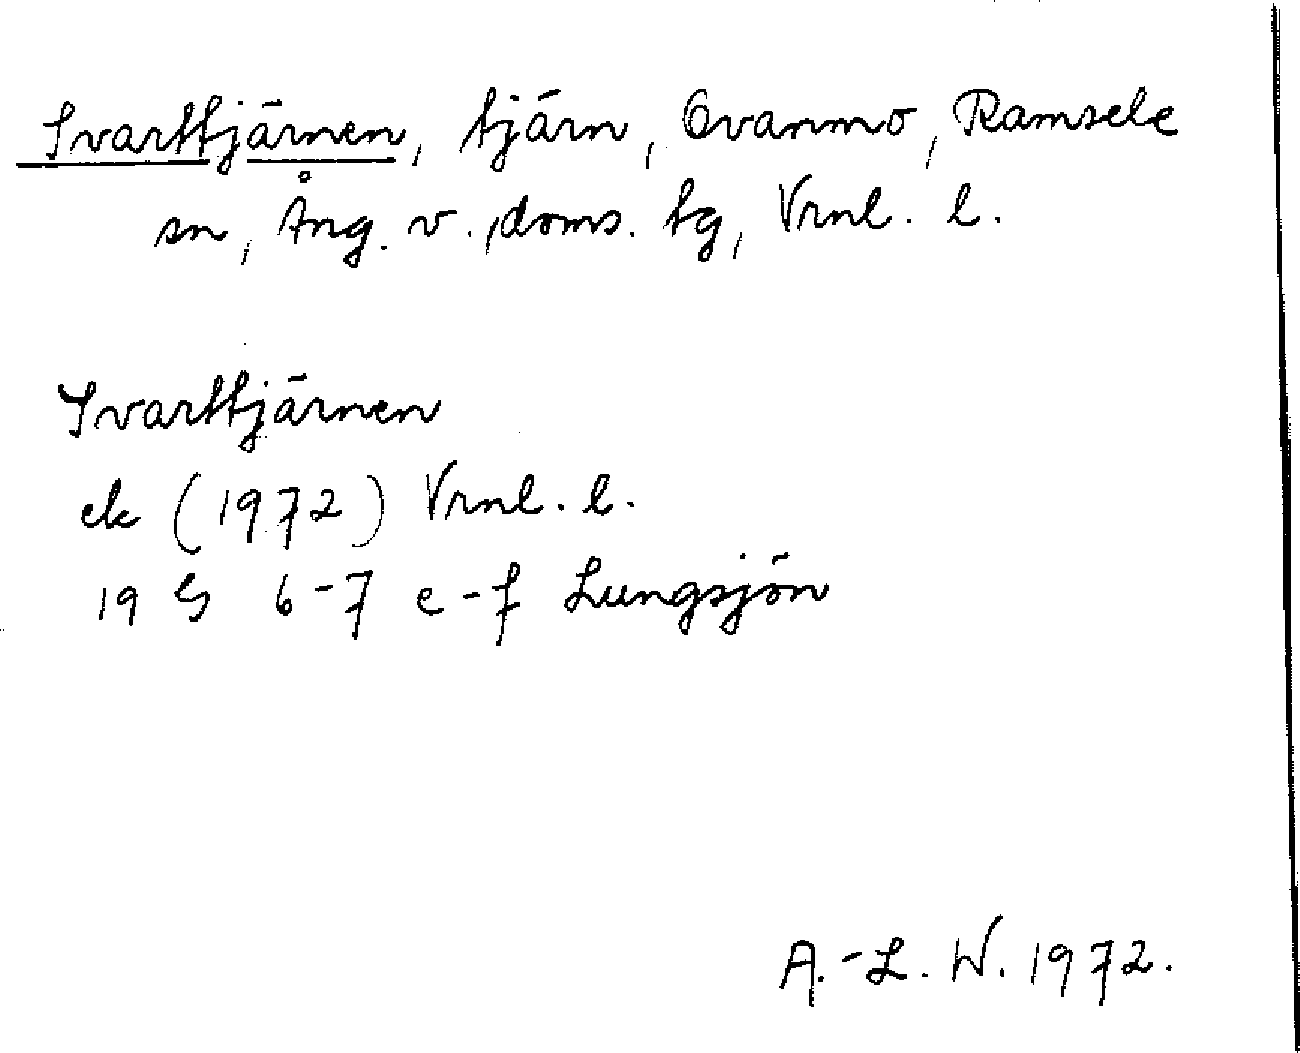 Svarttjärnen, tjärn, Ovanmo, Ramsele
sn, Ång. v., doms. tg, Vrnl. l.
Svarttjärnen
ek (1972) Vrnl. l.
19 G 6-7 e-f Lungsjön
A.-L. W. 1972.